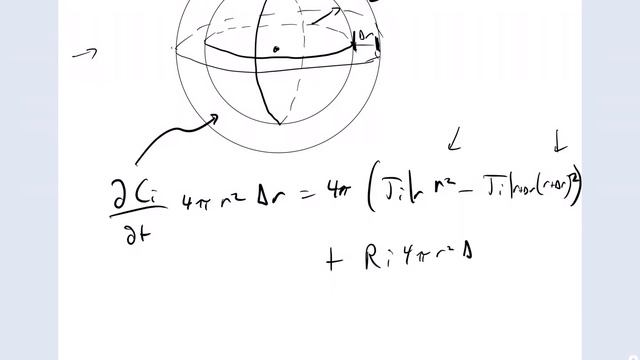 Δr
∂Ci/∂t 4π r² Δr = 4π (Ji|r r² − Ji|r+Δr (r+Δr)²)
+ Ri 4π r² Δ